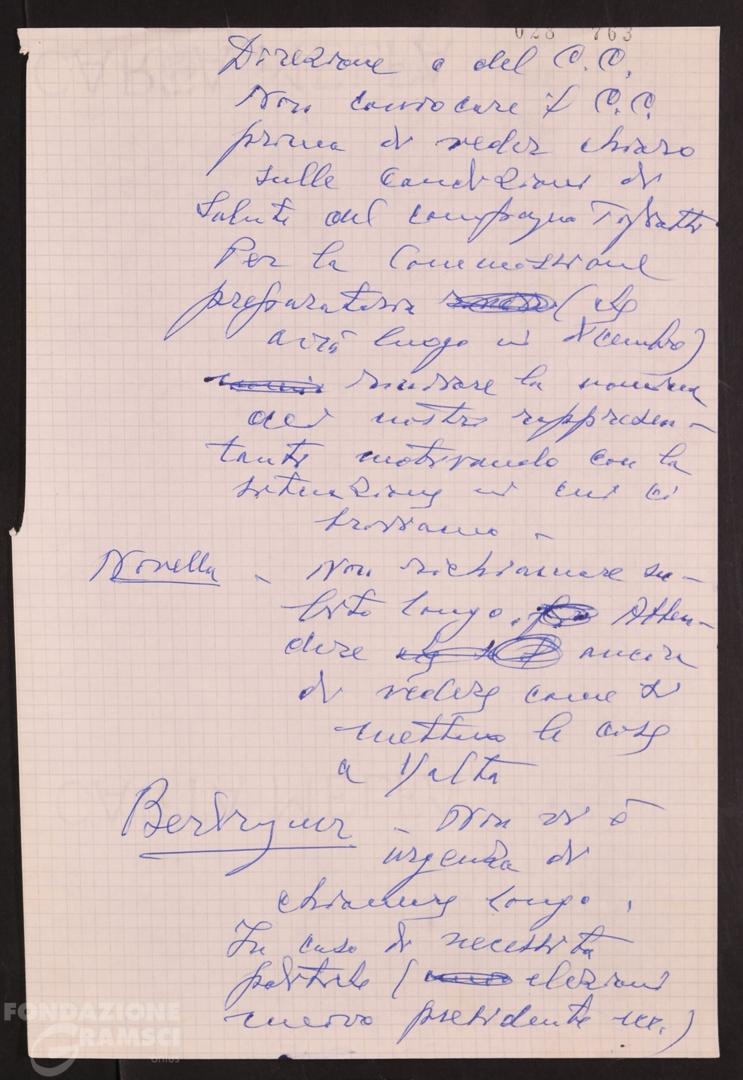 028 763
Direzione e del C.C.
Non convocare il C.C.
prima di veder chiaro
sulle condizioni di
salute del compagno Togliatti
Per la Commissione
preparatoria (che
avrà luogo in dicembre)
rinviare la nomina
dei nostri rappresen-
tanti motivando con la
situazione in cui ci
troviamo -
Novella - Non richiamare su-
bito Longo. Atten-
dere ancora
di vedere come si
mettono le cose
a Yalta
Berlinguer - Non vi è
urgenza di
chiamare Longo.
In caso di necessità
politiche ( elezioni
nuovo presidente ecc.)
FONDAZIONE
GRAMSCI
onlus